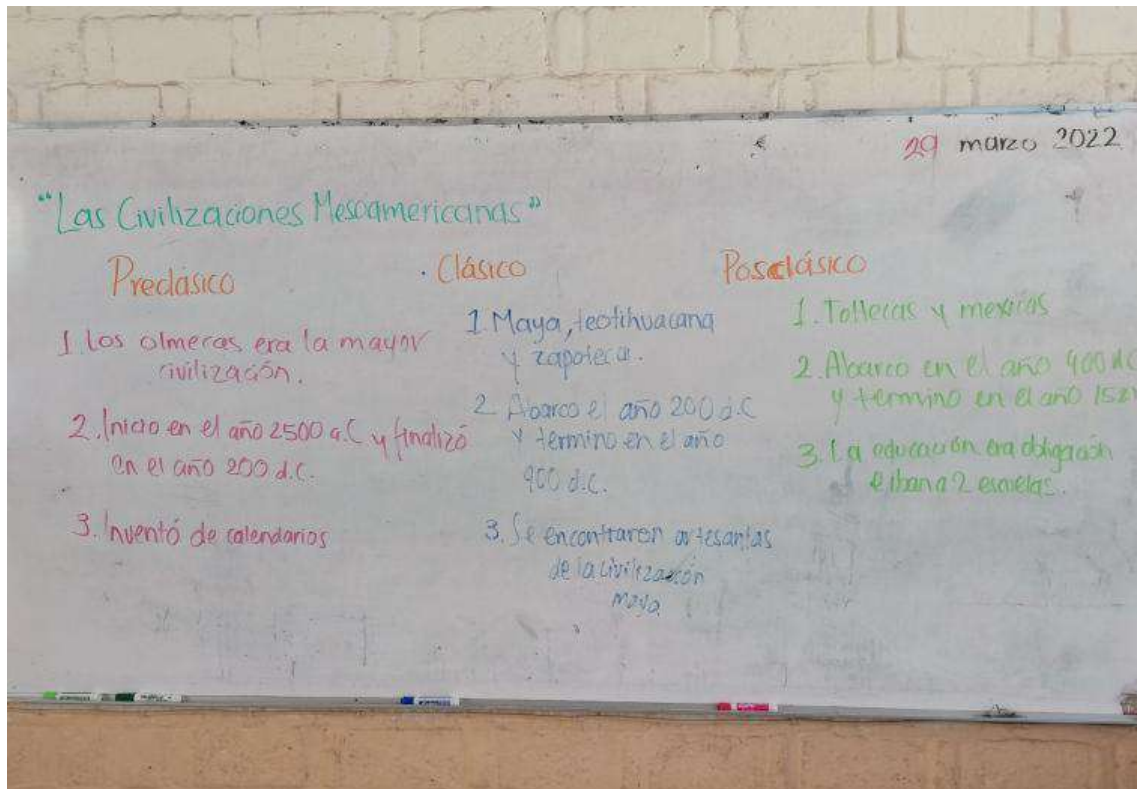 29 marzo 2022
"Las Civilizaciones Mesoamericanas"
Preclásico
1. Los olmecas era la mayor
civilización.
2. Inicio en el año 2500 a.C y finalizó
en el año 200 d.C.
3. Inventó de calendarios
. Clásico
1. Maya, teotihuacana
y zapoteca.
2. Abarco el año 200 d.C
y termino en el año
900 d.C.
3. Se encontraron artesanías
de la civilización
maya.
Posclásico
1. Toltecas y mexicas
2. Abarco en el año 900 dC
y termino en el año
3. La educación era obligación
e iban a 2 escuelas.